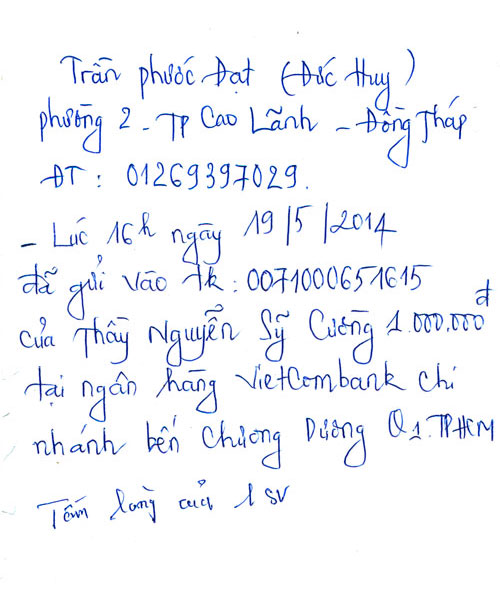 Trần phước Đạt (Đức Huy)
phường 2 - TP Cao Lãnh - Đồng Tháp
ĐT : 01269397029.
- Lúc 16h ngày 19/5/2014
đã gửi vào tk : 0071000651615
của Thầy Nguyễn Sỹ Cường 1.000.000đ
tại ngân hàng VietCombank chi
nhánh bến Chương Dương Q1.TPHCM
Tấm lòng của 1 SV